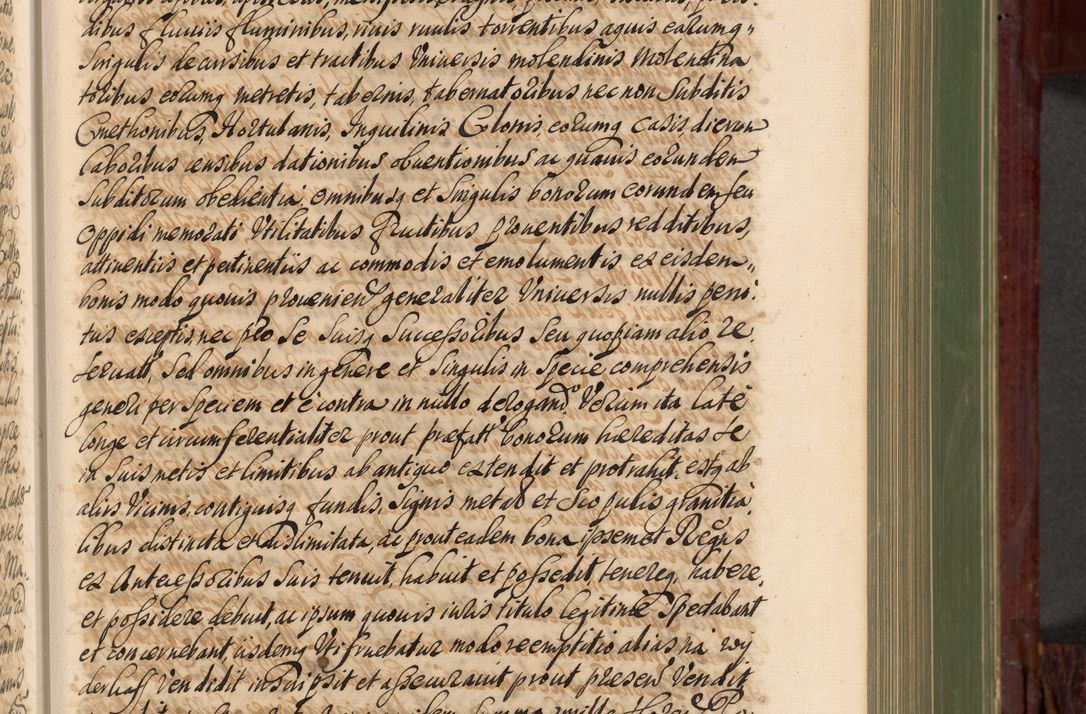 dibus fluviis fluminibus, rivis rivulis torrentibus aquis earumq"
Singulis decursibus et tractibus Vniversis molendinis Molendina
toribus eorumq metretis, tabernis, tabernatoribus nec non Subditis
Cmethonibus, Hortulanis, Inquilinis Colonis, eorumq casis, dierum
laboribus censibus dationibus obventionibus ac quavis eorundem
Subditorum obedientia, omnibusq et Singulis bonorum eorundem seu
Oppidi memorati Vtilitatibus fructibus proventibus redditibus,
attinentiis et pertinentiis ac commodis et emolumentis ex eisdem"
bonis modo quovis provenien generaliter Vniversis nullis peni
tus exceptis, nec pro Se Suisq Successoribus Seu quopiam alio re
servatt, Sed omnibus in genere et Singulis in Specie comprehensis
generi per Speciem et è contra in nullo derogando. Verum ita latè
longe et circumferentialiter prout præfatt bonorum hæreditas Se
in Suis metis et limitibus ab antiquo extendit et protrahit, estq ab
aliis Vicinis, contiguisq fundis, Signis metal et Scopulis granitia
libus distincta et dislimitata, ac prout eadem bona ipsemet Regnus
ex Antecessoribus Suis tenuit, habuit et possedit, tenereq, habere,
et possidere debuit, ac ipsum quovis iuris titulo legitimè Spectabant
et concernebant, iisdemq Vtifruebatur modo reemptitio alias na wy
derkaff Vendidit inscripsit et assecuravit prout presen Vendit